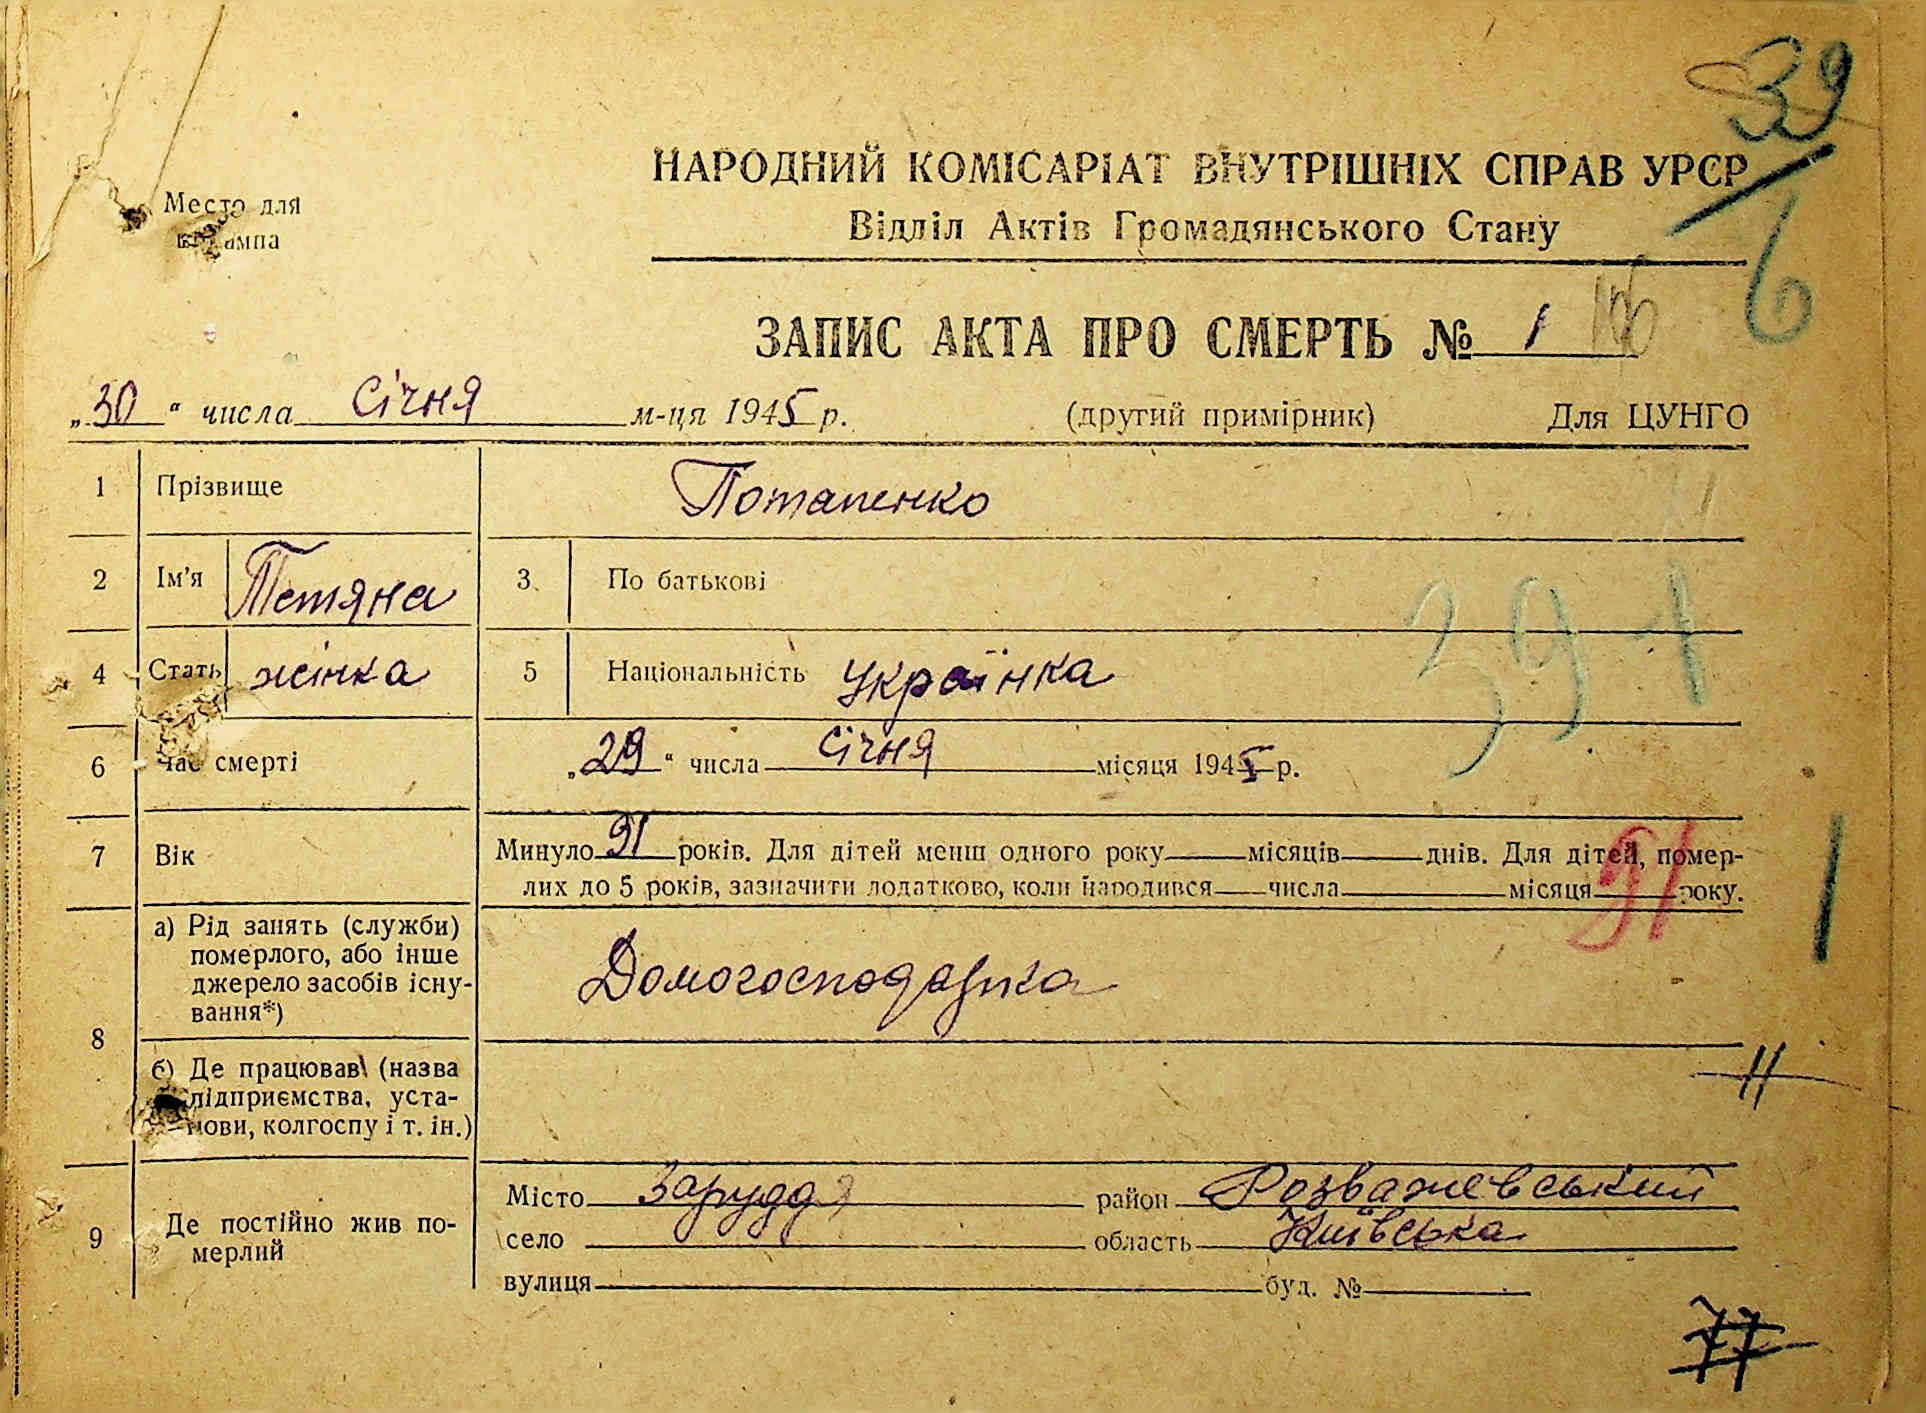 39
6
Место для
штампа
НАРОДНИЙ КОМІСАРІАТ ВНУТРІШНІХ СПРАВ УРСР
Відділ Актів Громадянського Стану
ЗАПИС АКТА ПРО СМЕРТЬ № 1
„30“ числа Січня м-ця 1945 р. (другий примірник) Для ЦУНГО
1 Прізвище Потапенко
2 Ім'я Тетяна 3 По батькові
391
4 Стать жінка 5 Національність українка
6 Час смерті „29“ числа Січня місяця 1945 р.
7 Вік Минуло 91 років. Для дітей менш одного року місяців днів. Для дітей, помер-
лих до 5 років, зазначити додатково, коли народився числа місяця року.
91
8 а) Рід занять (служби)
померлого, або інше
джерело засобів існу-
вання*)
Домогосподарка
б) Де працював (назва
підприємства, уста-
нови, колгоспу і т. ін.)
11
9 Де постійно жив по-
мерлий
Місто Заруддя район Розважевський
село область Київська
вулиця буд. №
77